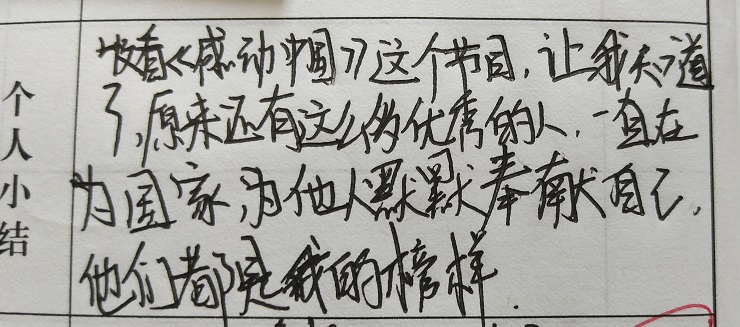 个人小结
收看《感动中国》这个节目,让我知道
了,原来还有这么多优秀的人,一直在
为国家,为他人默默奉献自己,
他们都是我的榜样.